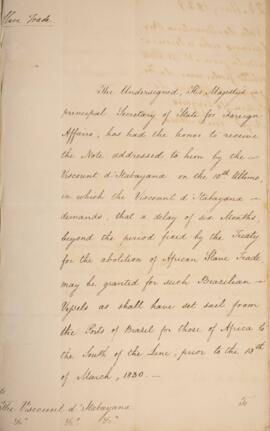 Slave Trade.
The Undersigned, His Majesty's
principal Secretary of State for Foreign
Affairs, has had the honor to receive
the Note addressed to him by the
Viscount d'Itabayana on the 10th Ultimo,
in which the Viscount d'Itabayana
demands, that a delay of six Months,
beyond the period fixed by the Treaty
for the abolition of African Slave Trade
may be granted for such Brazilian
Vessels as shall have set sail from
the Ports of Brazil for those of Africa to
the South of the Line, prior to the 13th
of March, 1830.
To
The Viscount d'Itabayana